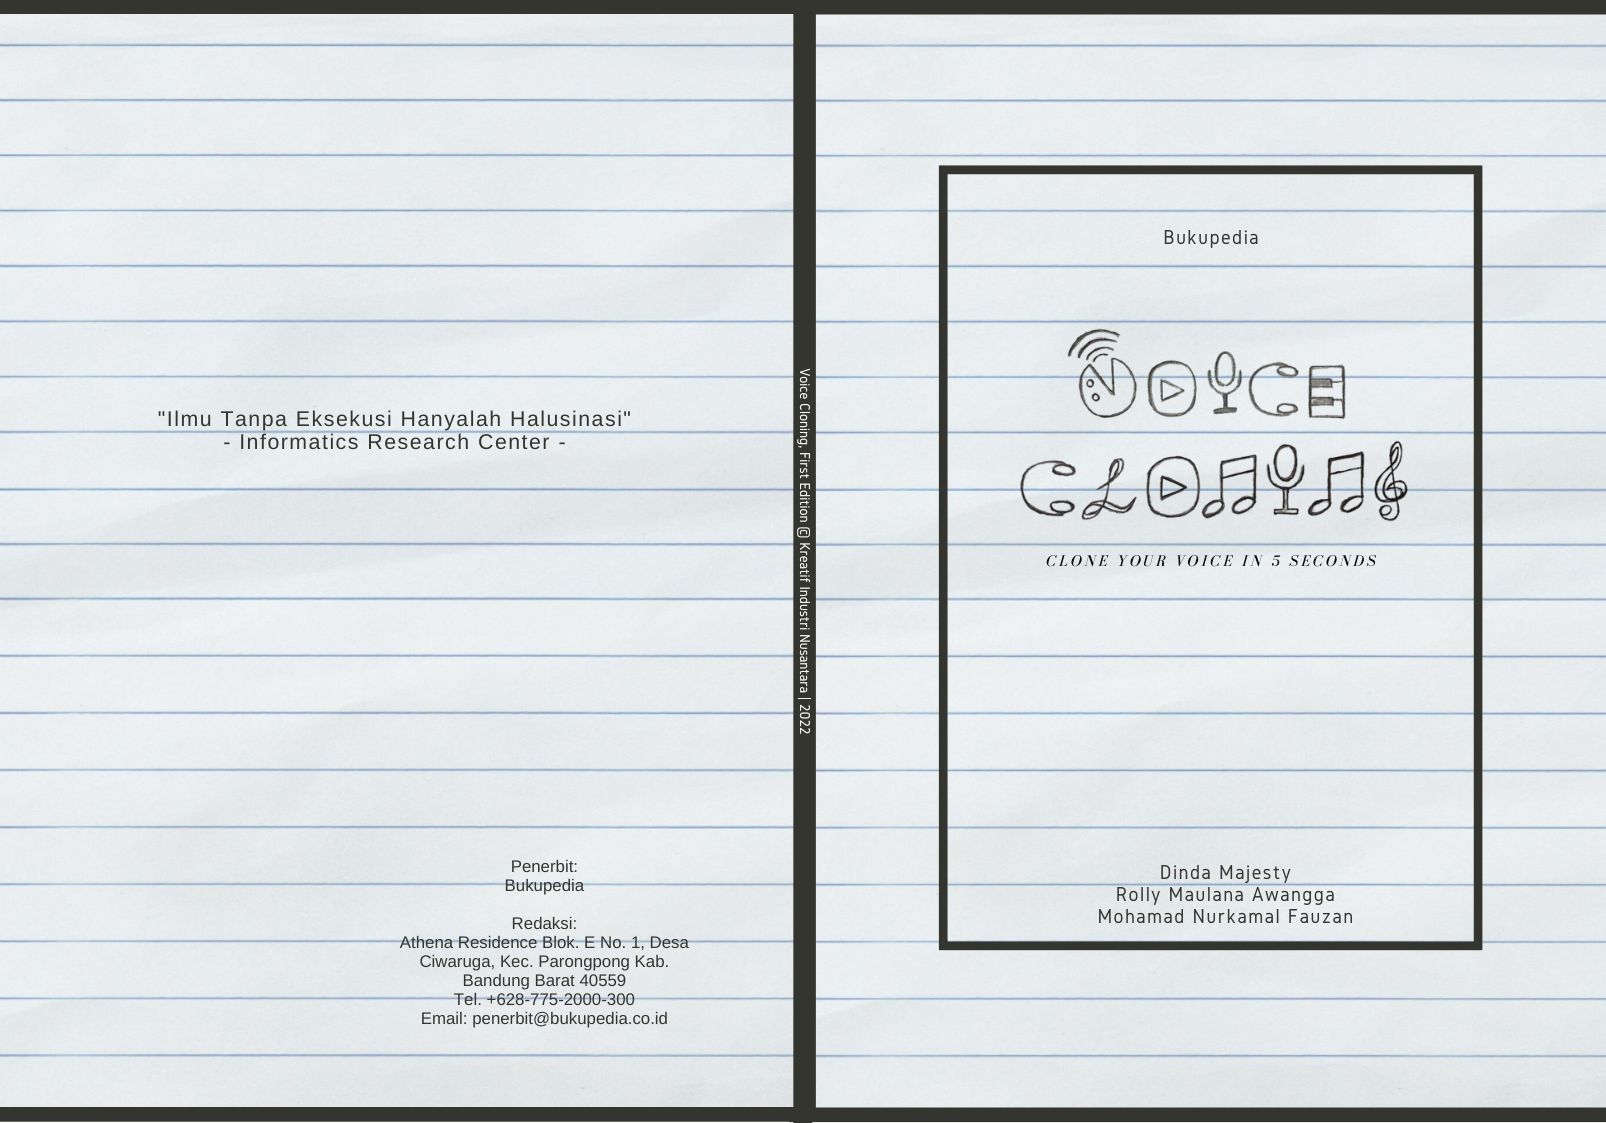 "Ilmu Tanpa Eksekusi Hanyalah Halusinasi"
- Informatics Research Center -
Penerbit:
Bukupedia
Redaksi:
Athena Residence Blok. E No. 1, Desa
Ciwaruga, Kec. Parongpong Kab.
Bandung Barat 40559
Tel. +628-775-2000-300
Email: penerbit@bukupedia.co.id
Voice Cloning, First Edition © Kreatif Industri Nusantara | 2022
Bukupedia
VOICE
CLONING
CLONE YOUR VOICE IN 5 SECONDS
Dinda Majesty
Rolly Maulana Awangga
Mohamad Nurkamal Fauzan